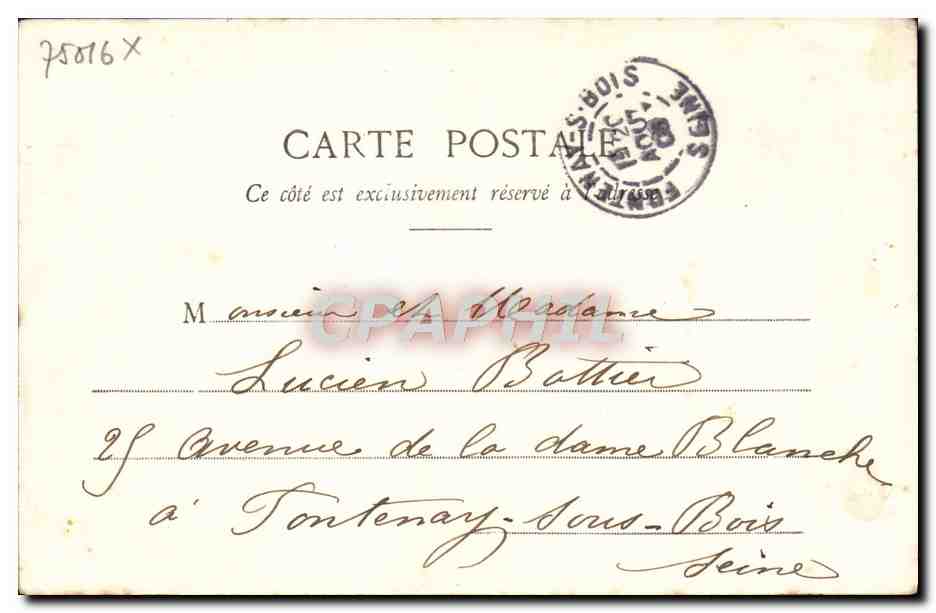 75016 X
FONTENAY-S-BOIS
SEINE
AOUT
03
CARTE POSTALE
Ce côté est exclusivement réservé à l'adresse
Monsieur et Madame
CPAPHIL
Lucien Bottier
25 avenue de la dame Blanche
à Fontenay-sous-Bois
Seine